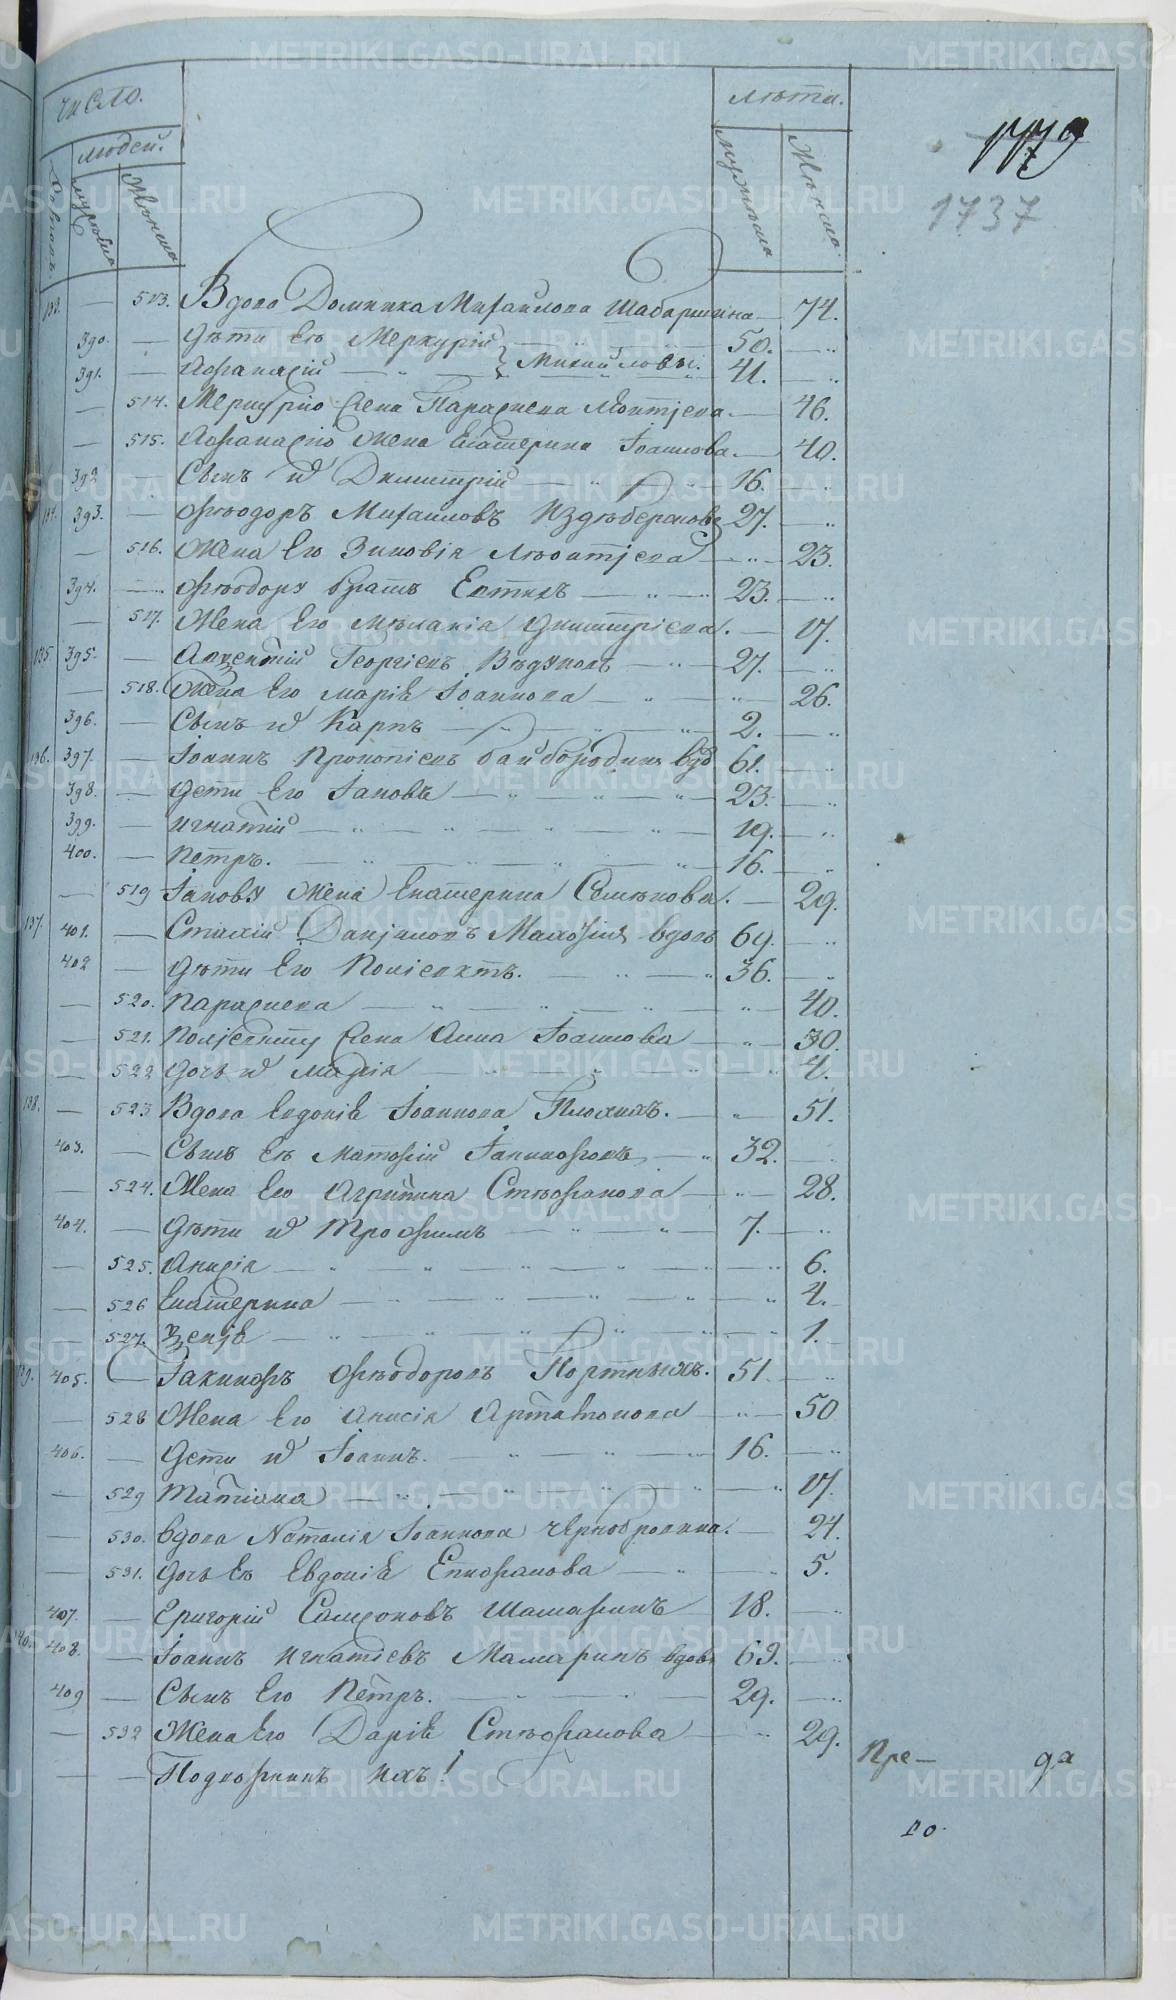 число.
людей.
мужеска
женска
лѣта.
мужеска
женска
1779
1737
133. — 513. Вдова Домника Михаилова Шабаршина — 74.
390. — Дѣти Ея Меркурій 50. —
391. — Афанасій — Михаиловы. 41. —
— 514. Меркурію жена Параскева Леонтіева. — 46.
— 515. Афанасію жена Екатерина Іоаннова. — 40.
392 — Сынъ их Димитрій — 16. —
134. 393. — Ѳеодоръ Михаиловъ 27. —
— 516. Жена Его Зиновія Леонтіева — 23.
394. — Ѳеодору братъ 23. —
— 517. Жена Его Меланія Димитріева. — 17.
135. 395. — Авксентій Георгіевъ 27. —
— 518. Жена Его Марія Іоаннова — 26.
396. — Сынъ их Карпъ — 2. —
136. 397. — Іоаннъ Прокопіевъ Байбородинъ вдов 61. —
398. — Дети Его Іаковъ — 23. —
399. — Игнатій — 19. —
400. — Петръ. — 16. —
— 519 Іакову жена Екатерина Семенова. — 29.
137. 401. — Даніиловъ вдовъ 69. —
402 — Дѣти Его Поліевктъ. — 36. —
— 520. Параскева — 40.
— 521. Поліевкту жена Анна Іоаннова — 30.
— 522 Дочь их Марія — 4.
138. — 523 Вдова Евдокія Іоаннова Плохихъ. — 51.
403. — Сынъ Ея Матфій Іакинфовъ — 32. —
— 524. Жена Его Агрипина Стефанова — 28.
404. — Дѣти их Трофимъ — 7. —
— 525. Анисія — 6.
— 526 Екатерина — 4.
— 527. Ксенія — 1.
139. 405. — Іакинфъ Ѳеодоровъ Портныхъ. 51. —
— 528 Жена Его Анисія Артамонова — 50
406. — Дети их Іоаннъ. — 16. —
— 529 Татіана — 17.
— 530. вдова Наталія Іоаннова Чернобровкина. — 24.
— 531. Дочь Ея Евдокія Епифанова — 5.
407. — Григорій Самсоновъ 18. —
140. 408. — Іоаннъ Игнатіевъ Мамаринъ вдовъ 69. —
409 — Сынъ Его Петръ. — 29. —
— 532 Жена Его Дарія Стефанова — 29.
— — ихъ!
Пре — да
го.